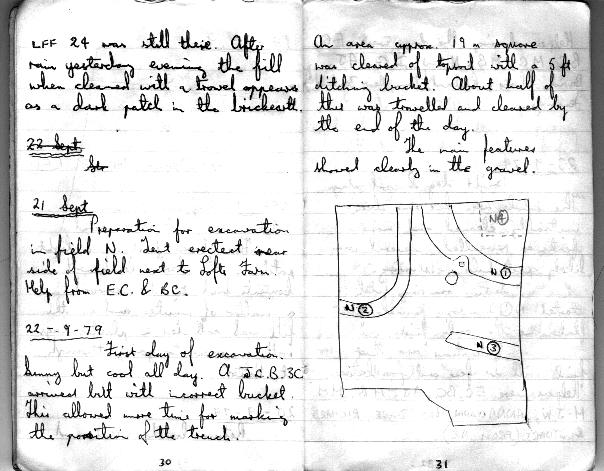 LFF 24 was still there. After
rain yesterday evening the fill
when cleaned with a trowel appears
as a dark patch in the brickearth.
22 Sept
21 Sept
Preparation for excavation
in field N. Tent erected near
side of field next to Lofts Farm
Help from E.C. & BC.
22-9-79
First day of excavation.
Sunny but cool all day. A J.C.B. 3C
arrived but with incorrect bucket.
This allowed more time for marking
the position of the trench.
30
An area approx. 19 m square
was cleared of topsoil with a 5 ft
ditching bucket. About half of
this was trowelled and cleaned by
the end of the day.
The main features
showed clearly in the gravel.
N④
N①
N②
N③
31